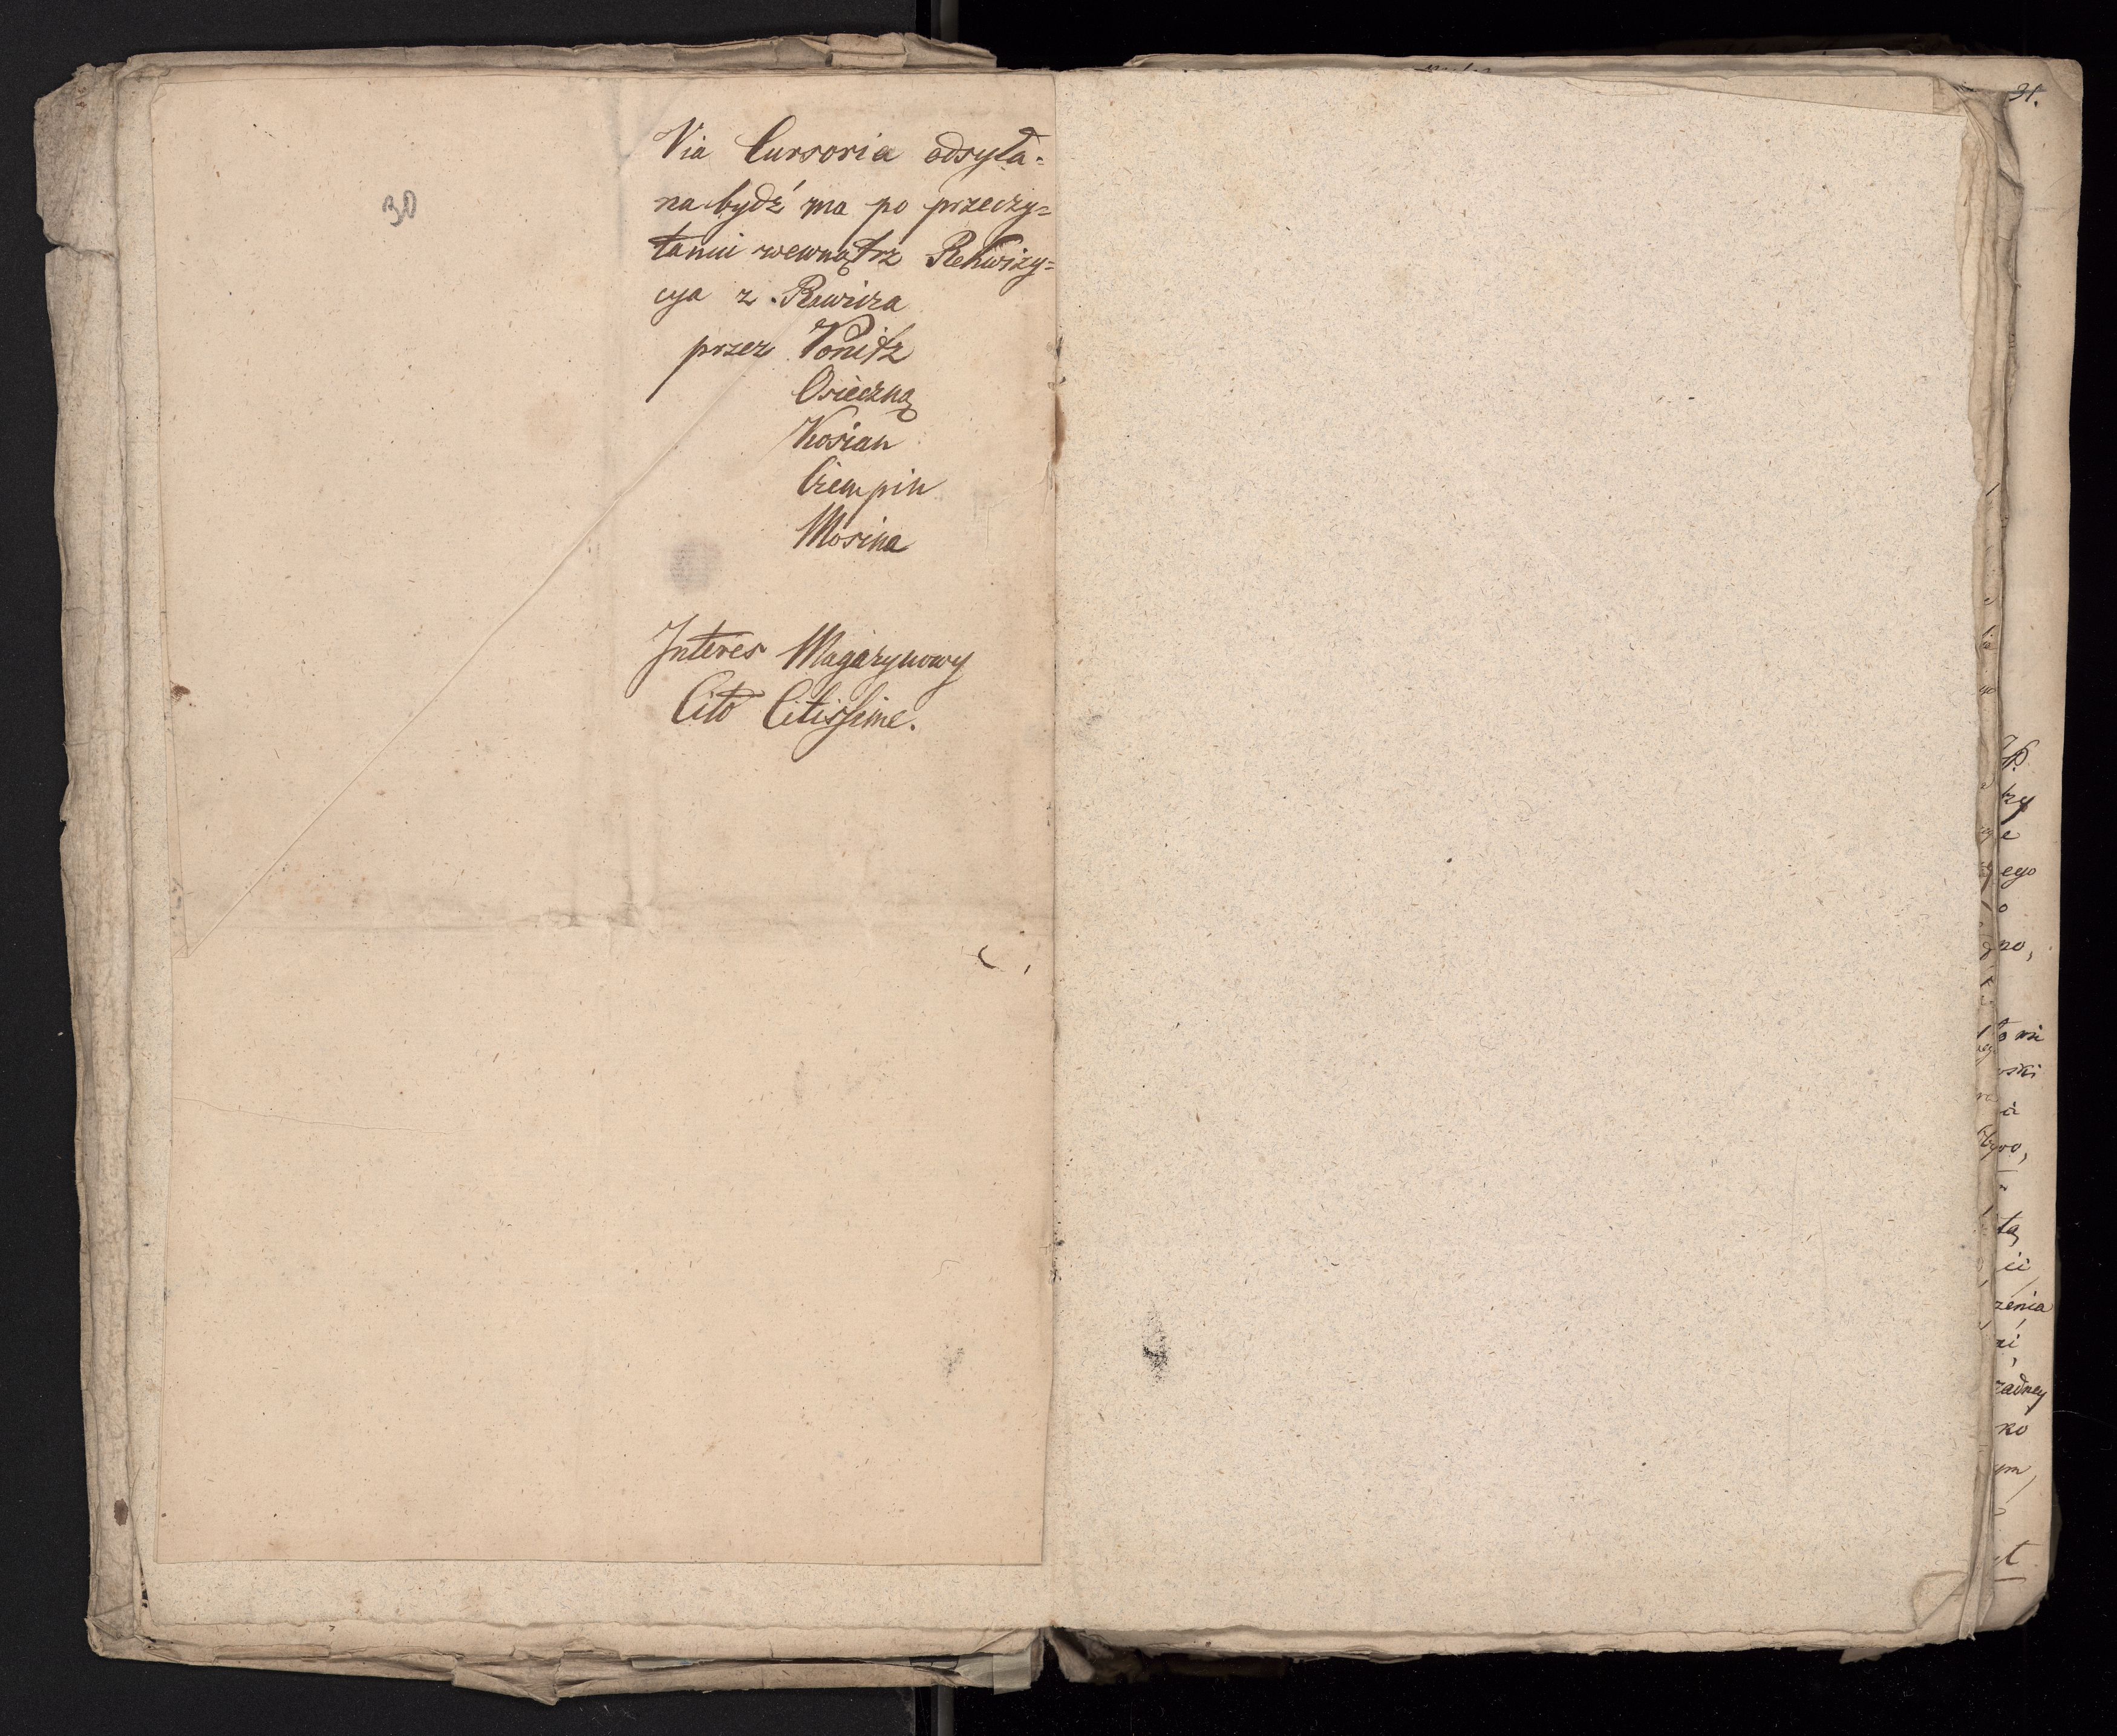 30
Via Cursoria odsyła=
na bydź ma po przeczy=
taniu wewnątrz Rekwizy=
cya z Rawicza
przez Ponitz
Osieczną
Kosian
Czempin
Mosina
Interes Magazynowy
Cito Citissime.
31.
zenia